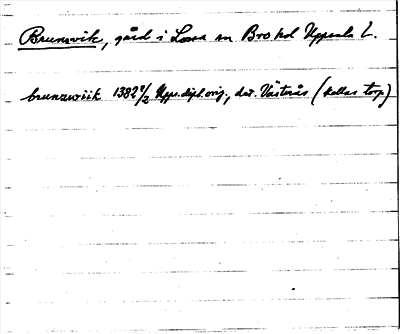 Brunsvik, gård i Lossa sn Bro hd Uppsala L.
brunzwiik 1382 9/2 Upps. dipl. orig., dat. Västerås (kallas torp)